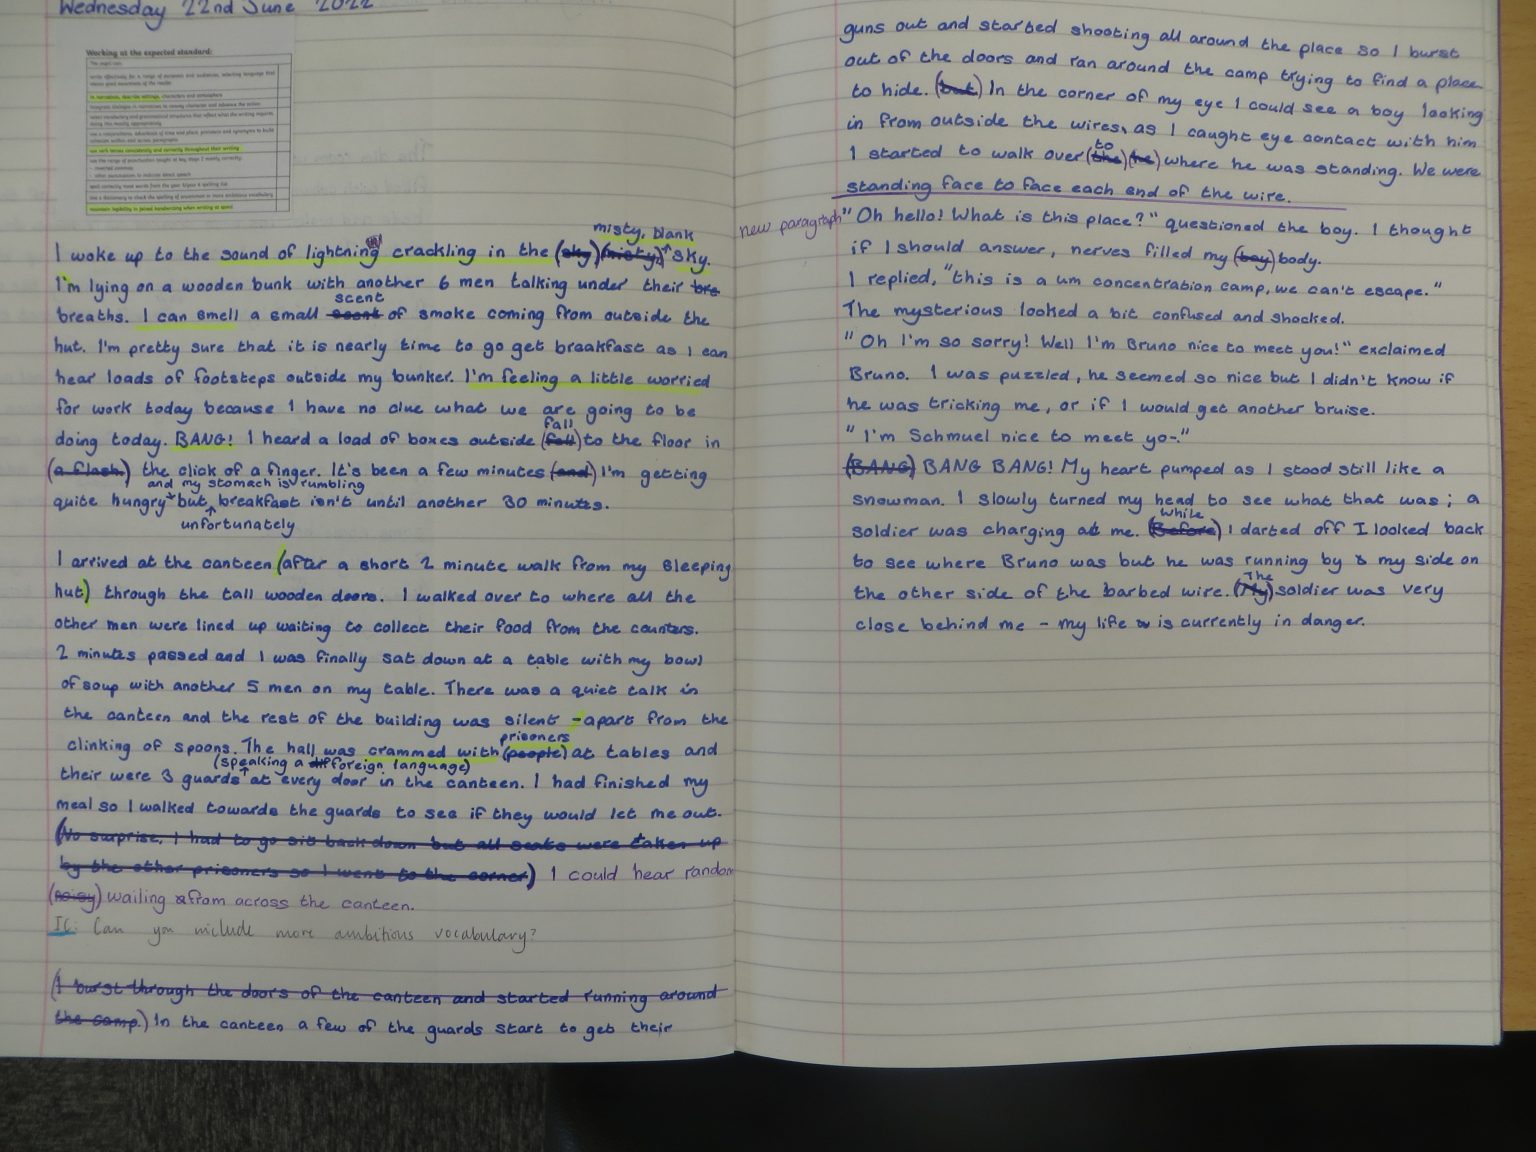 Wednesday 22nd June 2022
Working at the expected standard:
The pupil can:
write effectively for a range of purposes and audiences, selecting language that shows good awareness of the reader
in narratives, describe settings, characters and atmosphere
integrate dialogue in narratives to convey character and advance the action
select vocabulary and grammatical structures that reflect what the writing requires, doing this mostly appropriately
use verb tenses consistently and correctly throughout their writing
use the range of punctuation taught at key stage 2 mostly correctly
spell correctly most words from the year 5/year 6 spelling list
maintain legibility in joined handwriting when writing at speed
misty, blank
I woke up to the sound of lightning crackling in the (sky) (misty) sky.
I'm lying on a wooden bunk with another 6 men talking under their bre
scent
breaths. I can smell a small scent of smoke coming from outside the
hut. I'm pretty sure that it is nearly time to go get breakfast as I can
hear loads of footsteps outside my bunker. I'm feeling a little worried
for work today because I have no clue what we are going to be
fall
doing today. BANG! I heard a load of boxes outside (fall) to the floor in
(a flash) the click of a finger. It's been a few minutes (and) I'm getting
and my stomach is rumbling
quite hungry but breakfast isn't until another 30 minutes.
unfortunately
I arrived at the canteen (after a short 2 minute walk from my sleeping
hut) through the tall wooden doors. I walked over to where all the
other men were lined up waiting to collect their food from the counters.
2 minutes passed and I was finally sat down at a table with my bowl
of soup with another 5 men on my table. There was a quiet talk in
the canteen and the rest of the building was silent - apart from the
prisoners
clinking of spoons. The hall was crammed with (people) at tables and
(speaking a foreign language)
their were 3 guards at every door in the canteen. I had finished my
meal so I walked towards the guards to see if they would let me out.
(No surprise, I had to go sit back down but all seats were taken up
by the other prisoners so I went to the corner) I could hear random
(noisy) wailing from across the canteen.
IC: Can you include more ambitious vocabulary?
(I burst through the doors of the canteen and started running around
the camp.) In the canteen a few of the guards start to get their
guns out and started shooting all around the place so I burst
out of the doors and ran around the camp trying to find a place
to hide. (but) In the corner of my eye I could see a boy looking
in from outside the wires, as I caught eye contact with him
to
I started to walk over (the) (he) where he was standing. We were
standing face to face each end of the wire.
new paragraph "Oh hello! What is this place?" questioned the boy. I thought
if I should answer, nerves filled my (boy) body.
I replied, "this is a um concentration camp, we can't escape."
The mysterious looked a bit confused and shocked.
"Oh I'm so sorry! Well I'm Bruno nice to meet you!" exclaimed
Bruno. I was puzzled, he seemed so nice but I didn't know if
he was tricking me, or if I would get another bruise.
"I'm Schmuel nice to meet yo-."
(BANG) BANG BANG! My heart pumped as I stood still like a
snowman. I slowly turned my head to see what that was; a
while
soldier was charging at me. (Before) I darted off I looked back
to see where Bruno was but he was running by my side on
The
the other side of the barbed wire. (My) soldier was very
close behind me - my life is currently in danger.